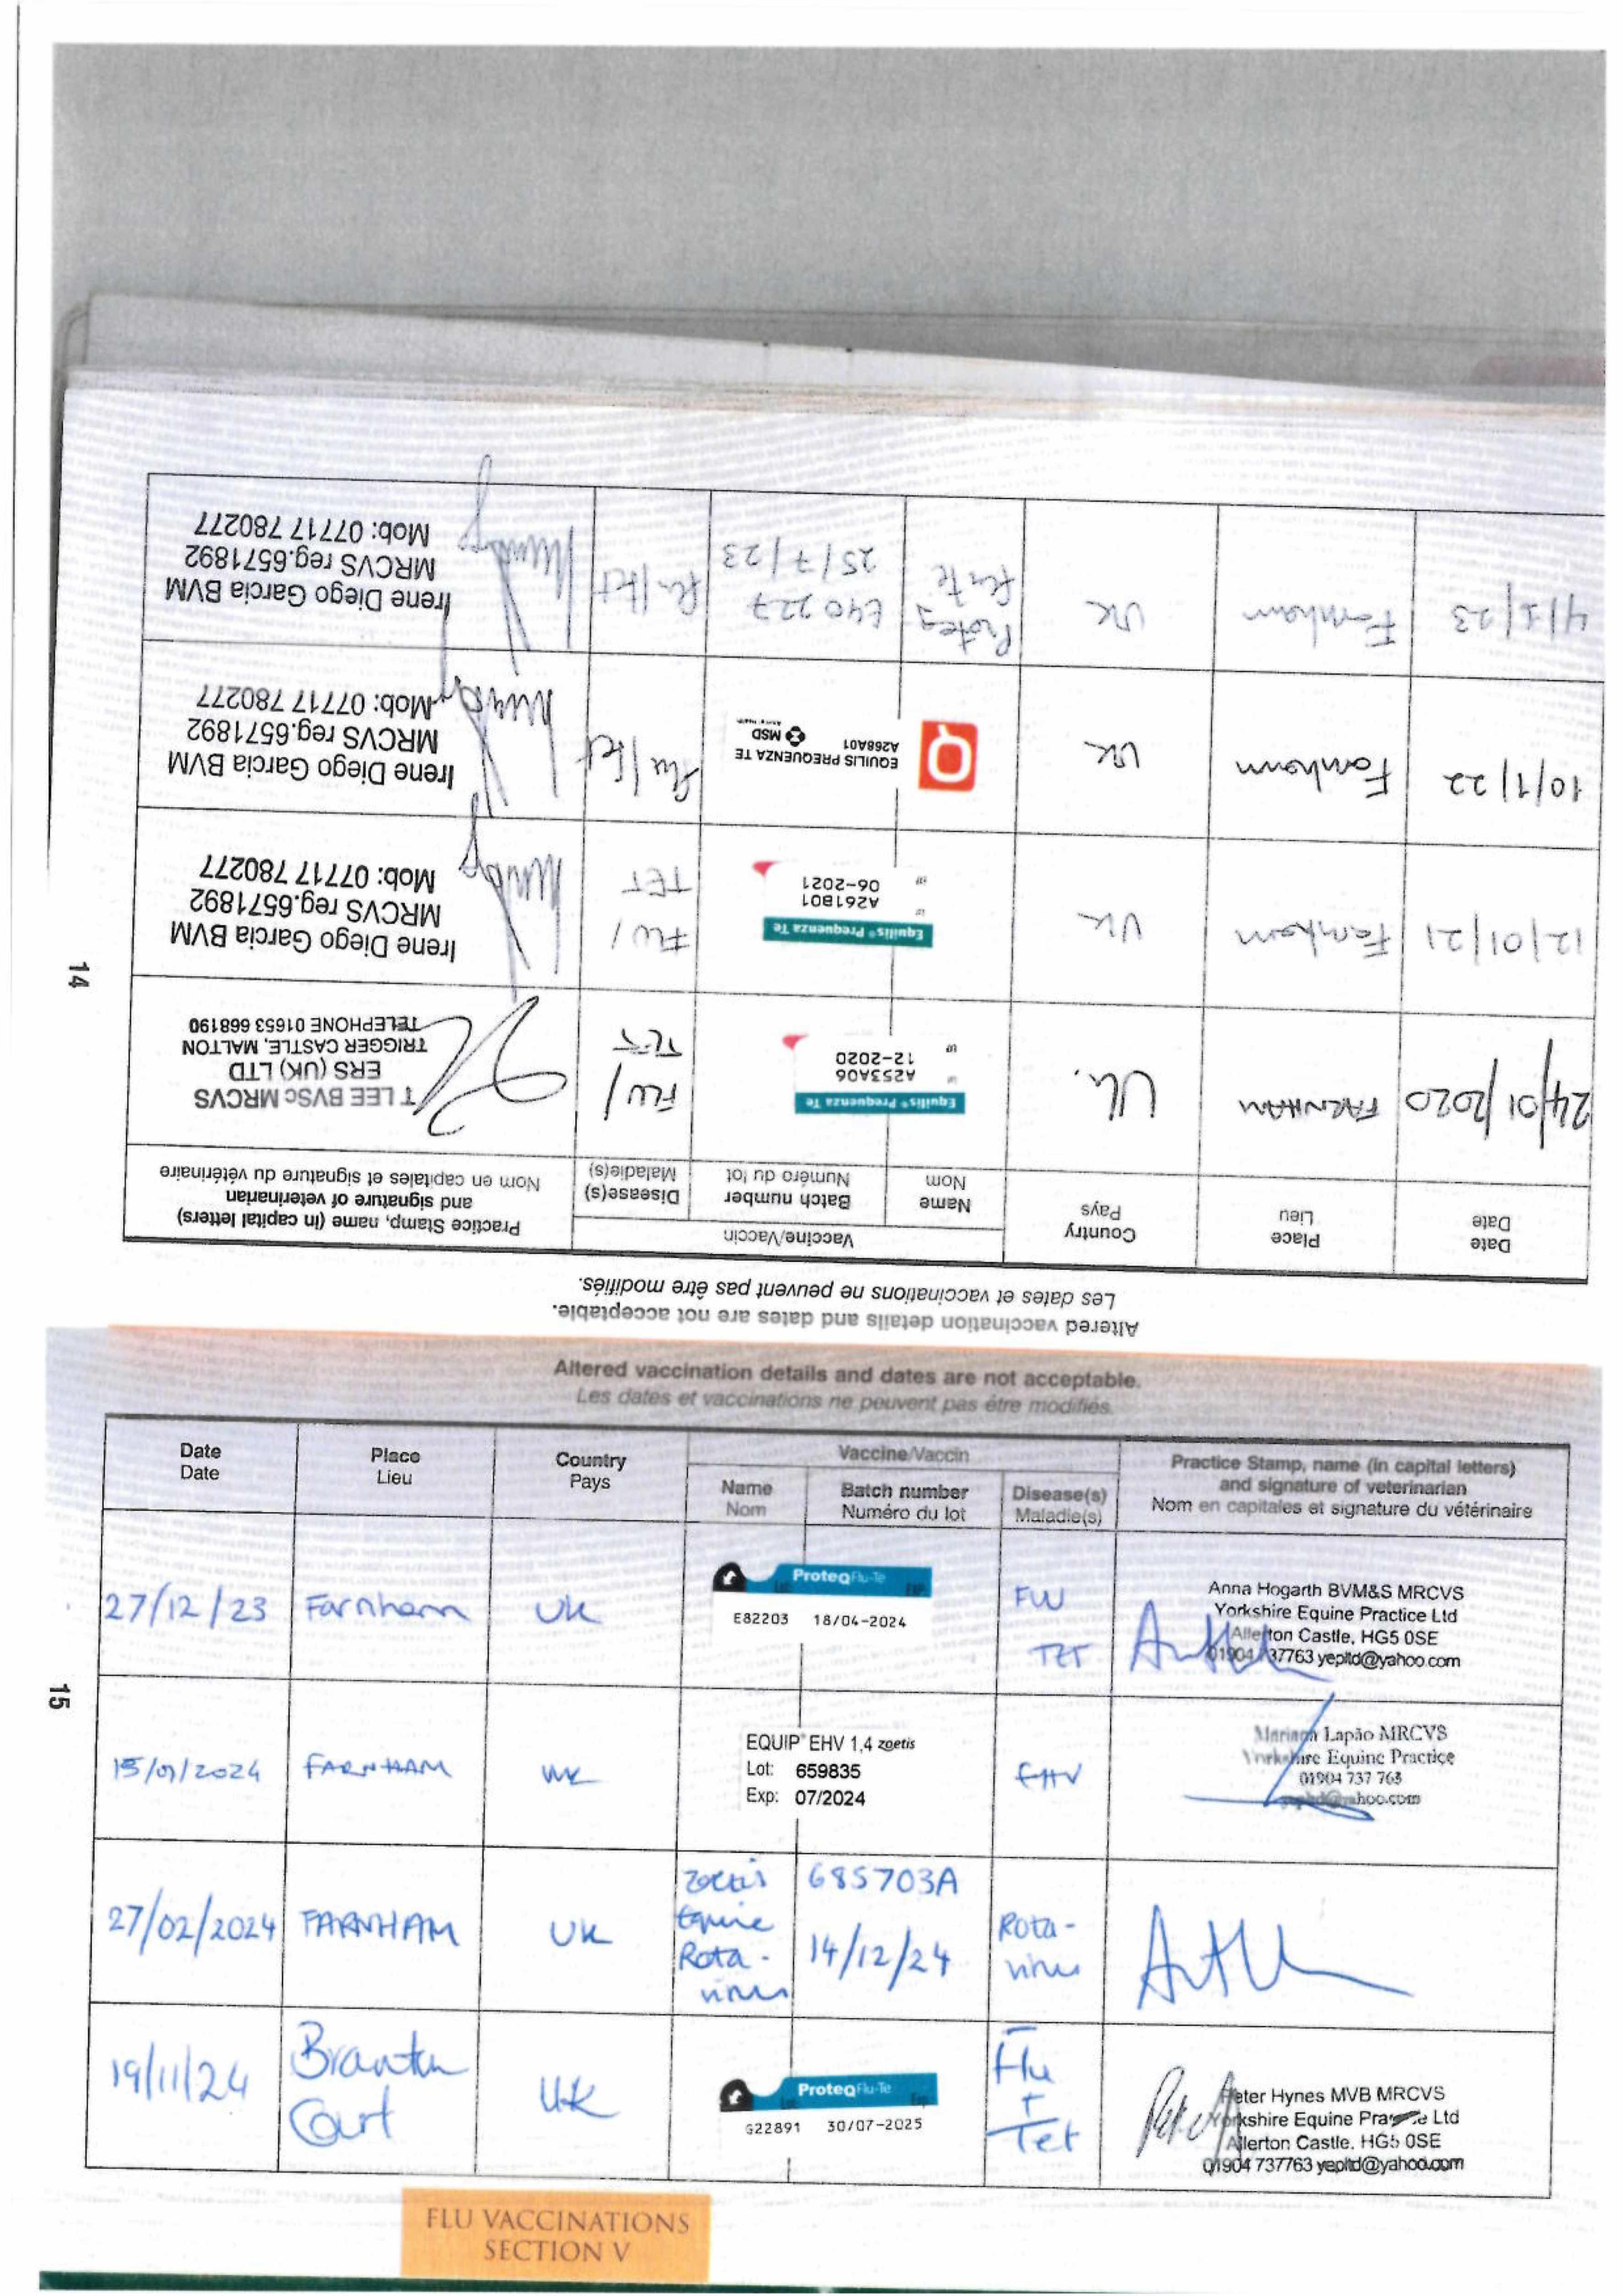 14
Altered vaccination details and dates are not acceptable.
Les dates et vaccinations ne peuvent pas être modifiés.
Date
Date
Place
Lieu
Country
Pays
Vaccine/Vaccin
Name
Nom
Batch number
Numéro du lot
Disease(s)
Maladie(s)
Practice Stamp, name (in capital letters)
and signature of veterinarian
Nom en capitales et signature du vétérinaire
24/01/2020
FARNHAM
Uk.
Equilis® Prequenza Te
A253A06
12-2020
FLU/
TET
T LEE BVSc MRCVS
ERS (UK) LTD
TRIGGER CASTLE, MALTON
TELEPHONE 01653 668190
12/01/21
Farnham
UK
Equilis® Prequenza Te
A261B01
06-2021
FLU/
TET
Irene Diego Garcia BVM
MRCVS reg.6571892
Mob: 07717 780277
10/1/22
Farnham
UK
EQUILIS PREQUENZA TE
A268A01
MSD
Animal Health
flu/tet
Irene Diego Garcia BVM
MRCVS reg.6571892
Mob: 07717 780277
4/1/23
Farnham
UK
Proteq
flu te
E40227
25/7/23
flu/tet
Irene Diego Garcia BVM
MRCVS reg.6571892
Mob: 07717 780277
15
Altered vaccination details and dates are not acceptable.
Les dates et vaccinations ne peuvent pas être modifiés.
Date
Date
Place
Lieu
Country
Pays
Vaccine/Vaccin
Name
Nom
Batch number
Numéro du lot
Disease(s)
Maladie(s)
Practice Stamp, name (in capital letters)
and signature of veterinarian
Nom en capitales et signature du vétérinaire
27/12/23
Farnham
UK
ProteqFlu-Te
Lot
EXP.
E82203 18/04-2024
FLU
TET
Anna Hogarth BVM&S MRCVS
Yorkshire Equine Practice Ltd
Allerton Castle, HG5 0SE
01904 737763 yepltd@yahoo.com
15/01/2024
FARNHAM
UK
EQUIP® EHV 1,4 zoetis
Lot: 659835
Exp: 07/2024
EHV
Mariana Lapão MRCVS
Yorkshire Equine Practice
01904 737 763
yepltd@yahoo.com
27/02/2024
FARNHAM
UK
Zoetis
Equine
Rota-
virus
685703A
14/12/24
Rota-
virus
19/11/24
Branton
Court
UK
ProteqFlu-Te
Lot
Exp.
G22891 30/07-2025
Flu
+
Tet
Peter Hynes MVB MRCVS
Yorkshire Equine Practice Ltd
Allerton Castle, HG5 0SE
01904 737763 yepltd@yahoo.com
FLU VACCINATIONS
SECTION V